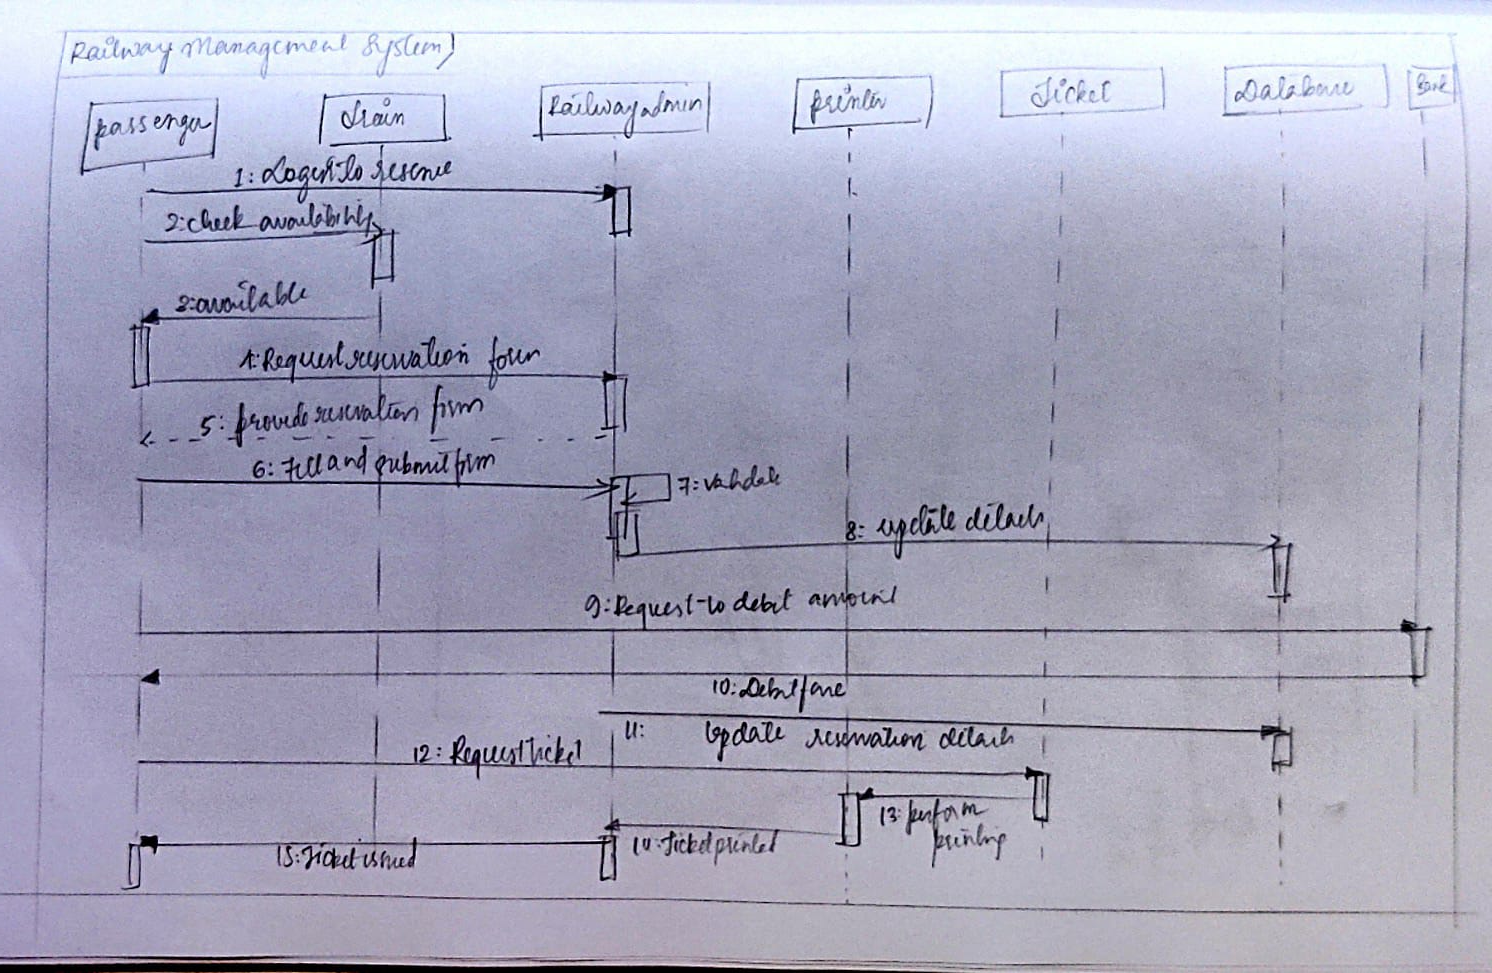 Railway Management System
passenger
Train
Railway admin
printer
Ticket
Database
Bank
1: Login to reserve
2: check availability
3: available
4: Request reservation form
5: provide reservation form
6: Fill and submit form
7: validate
8: update details
9: Request to debit amount
10: Debit fare
11: Update reservation details
12: Request ticket
13: perform
printing
14: Ticket printed
15: Ticket issued